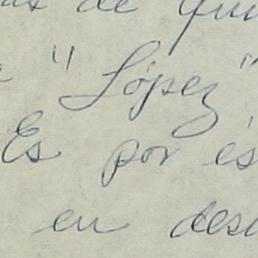 de
" López "
Es por és
en des